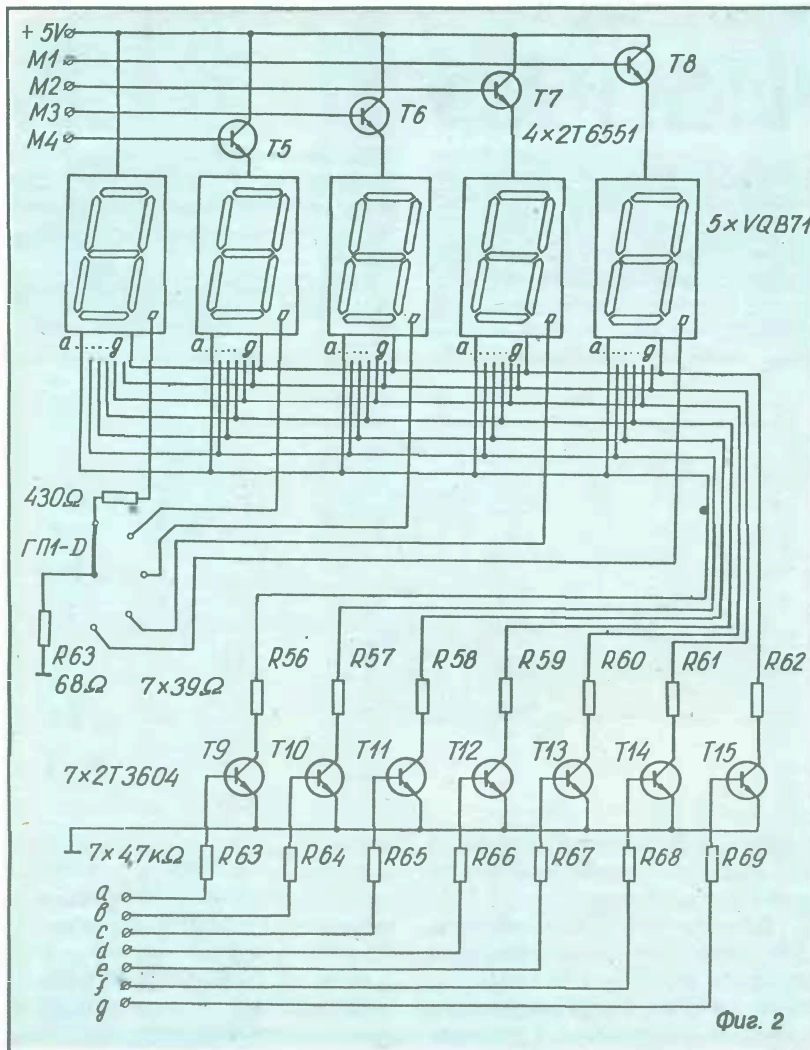 + 5V
M1
M2
M3
M4
T5
T6
T7
T8
4×2T6551
5×VQB71
a ...... g
a ...... g
a ...... g
a ...... g
a ...... g
430Ω
ГП1-D
R63
68Ω
7×39Ω
R56
R57
R58
R59
R60
R61
R62
7×2T3604
T9
T10
T11
T12
T13
T14
T15
7×47кΩ
R63
R64
R65
R66
R67
R68
R69
a
b
c
d
e
f
g
Фиг. 2